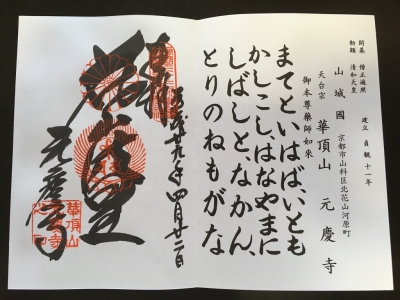 開基 僧正遍照
勅願 清和天皇
建立 貞観十一年
山城國
京都市山科区北花山河原町
天台宗 華頂山 元慶寺
御本尊薬師如来
まてといはばいとも
かしこし、はなやまに
しばしと、なかん、
とりのねもがな
奉拝
平成廿九年四月廿二日
元慶寺
華頂山